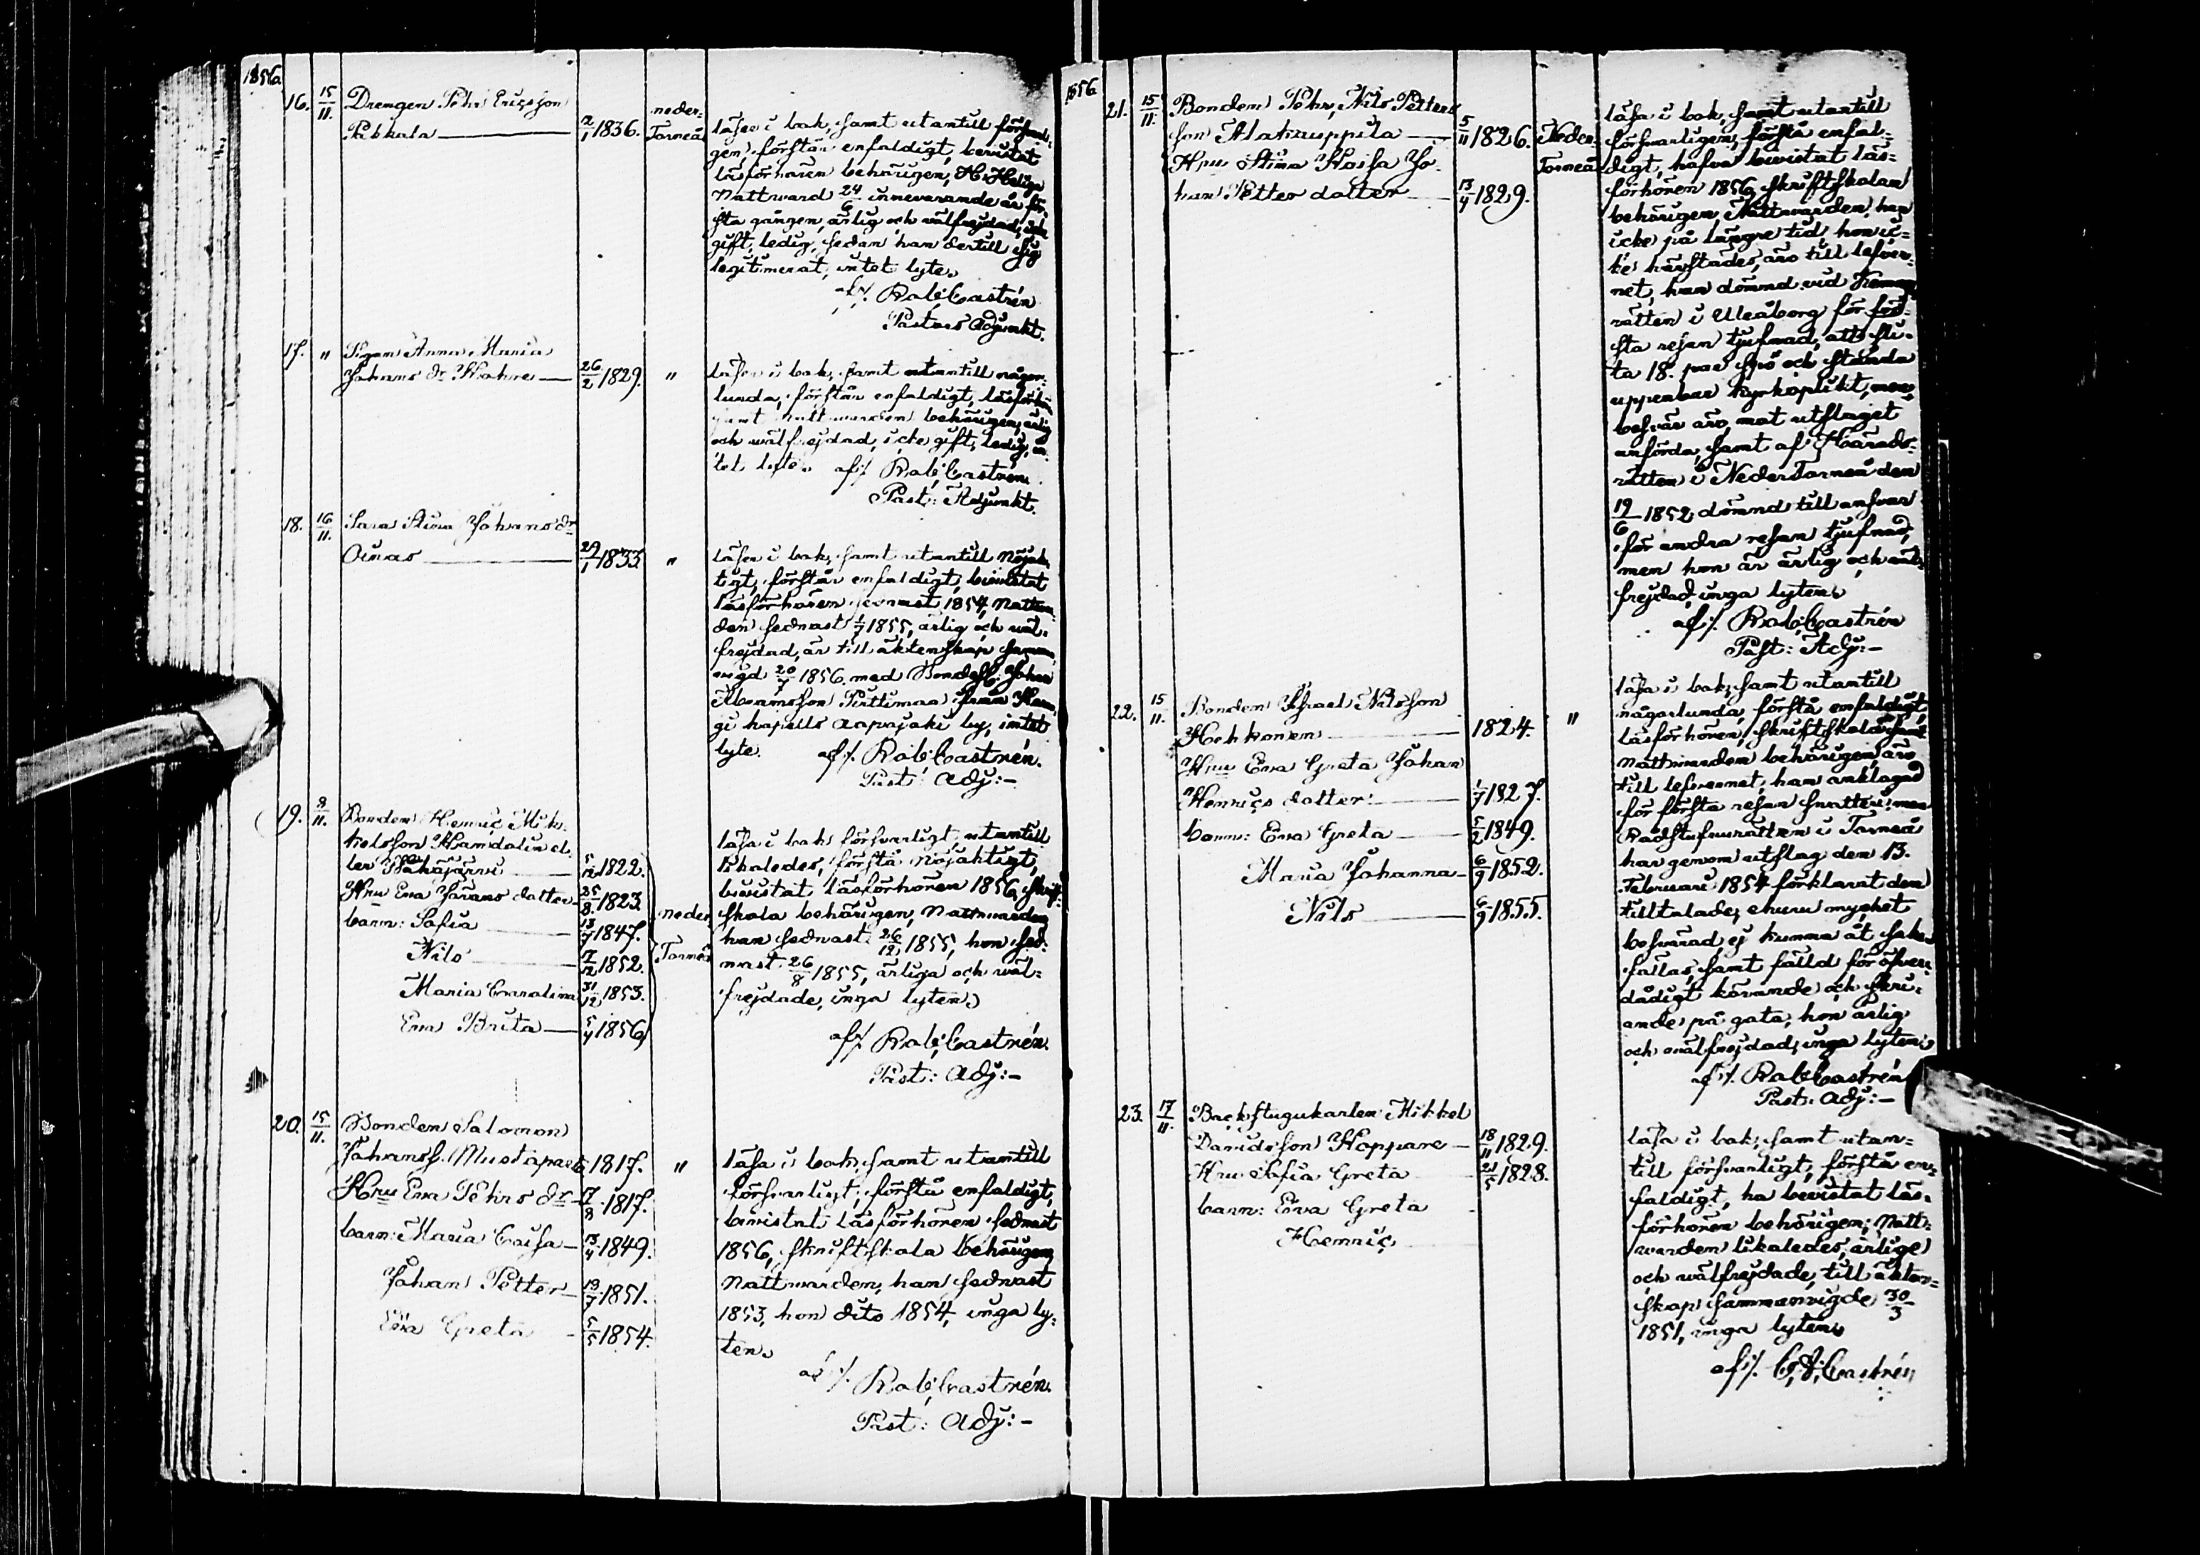 1856
16. 15/11. Drengen Pehr Ericsson
Pekkala 2/1 1836. neder-
Torneå
läser i bok, samt utantill försvarli-
gen, förstår enfaldigt, bevistat
läsförhören behörigen, H. Heliga
Nattward 24/6 innevarande år för-
sta gången, ärlig och välfrejdad, icke
gift, ledig, sedan han dertill sig
legitimerat, intet lyte.
af/. Rob: Castrén
Pastors Adjunkt.
17. " Pigan Anna Maria
Johans dr 26/2 1829. "
läser i bok, samt utantill någor-
lunda, förstår enfaldigt, läsförhören
samt nattwarden behörigen, ärlig
och wälfrejdad, icke gift, ledig, in-
tet lyte. af/. Rob: Castrén.
Past: Adjunkt.
18. 16/11. Sara Stina Johans dr
Oinas 29/1 1833. "
läser i bok, samt utantill nöjak-
tigt, förstår enfaldigt, bevistat
läsförhören sednast 1854, Nattwar-
den sednast 1/7 1855, ärlig och wäl-
frejdad, är till äktenskap samman-
vigd 20/7 1856. med Bondes. Johan
Abramsson Pirttimaa från Karun-
gi kapells Aapajoki by, intet
lyte. af/. Rob: Castrén.
Past: Adj:-
19. 9/11. Bonden Henric Mik-
kelsson el-
ler 5/12 1822.
Hru Eva Jörans dotter 25/8 1823.
barn: Sofia 13/7 1847.
Nils 7/12 1852.
Maria Carolina 31/12 1853.
Eva Brita 5/4 1856
neder
Torneå
läsa i bok försvarligt, utantill
likaledes, förstå nöjaktigt,
bevistat läsförhören 1856, skrift-
skola behörigen, Nattwarden
han sednast 26/12 1855, hon sed-
nast 26/8 1855, ärliga och wäl-
frejdade, inga lyten.
af/. Rob: Castrén.
Past: Adj:-
20. 15/11. Bonden Salomon
Johanss. Mustaparta 1817. "
Hru Eva Pehrs dr 17/8 1817.
barn: Maria Caisa 13/4 1849.
Johan Petter 19/7 1851.
Eva Greta 5/5 1854.
läsa i bok, samt utantill
försvarligt, förstå enfaldigt,
bevistat läsförhören sednast
1856, skriftskola behörigen,
Nattwarden, han sednast
1853, hon dito 1854, inga ly-
ten.
af/. Rob: Castrén.
Past: Adj:-
1856
21. 15/11. Bonden Pehr, Nils Petters
son Alaruppila 5/11 1826. Neder-
Torneå
Hru Stina Kaisa Jo-
han Petters dotter 13/4 1829.
läsa i bok, samt utantill
försvarligen, förstå enfal-
digt, hafva bevistat läs-
förhören 1856, skriftskolan
behörigen, Nattwarden, han
icke på längre tid, hon ic-
ke härstädes, äro till lefver-
net, han dömmd vid
rätten i Uleåborg för för-
sta resan tjufnad, att sli-
ta 18. par spö och stånda
uppenbar kyrkoplikt, men
besvär äro, mot utslaget
anförda, samt af Härads-
rätten i NederTorneå den
19/6 1852 dömnd till ansvar
för andra resan tjufnad,
men hon är ärlig och wäl-
frejdad, inga lyten.
af/. Rob: Castrén
Past: Adj:-
22. 15/11. Bonden Israel Nilsson
Hehkonen 1824. "
Hru Eva Greta Johan
Henrics dotter 1/7 1827.
barn: Eva Greta 5/2 1849.
Maria Johanna 6/9 1852.
Nils 6/9 1855.
läsa i bok, samt utantill
någorlunda, förstå enfaldigt,
läsförhören, skriftskola samt
nattwarden behörigen, äro
till lefvernet, han anklagad
för första resan snatteri, men
Rådstufvurätten i Torneå
har genom utslag den 13.
Februari 1854 förklarat den
tilltalade, ehuru mycket
besvärad, ej kunna åt saken
fällas, samt fälld för öfver-
dådigt körande och skri-
ande på gata, hon ärlig
och wälfrejdad, inga lyten.
af/. Rob: Castrén
Past: Adj:-
23. 17/11. Backstugukarlen Mikkel
Davidsson Hoppare 18/11 1829.
Hru Sofia Greta 21/5 1828.
barn: Eva Greta
Henric
läsa i bok, samt utan-
till försvarligt, förstå en-
faldigt, ha bevistat läs-
förhören behörigen, Natt-
warden likaledes, ärlige
och wälfrejdade, till äkten-
skap sammanvigde 30/3
1851, inga lyten.
af/. Castrén